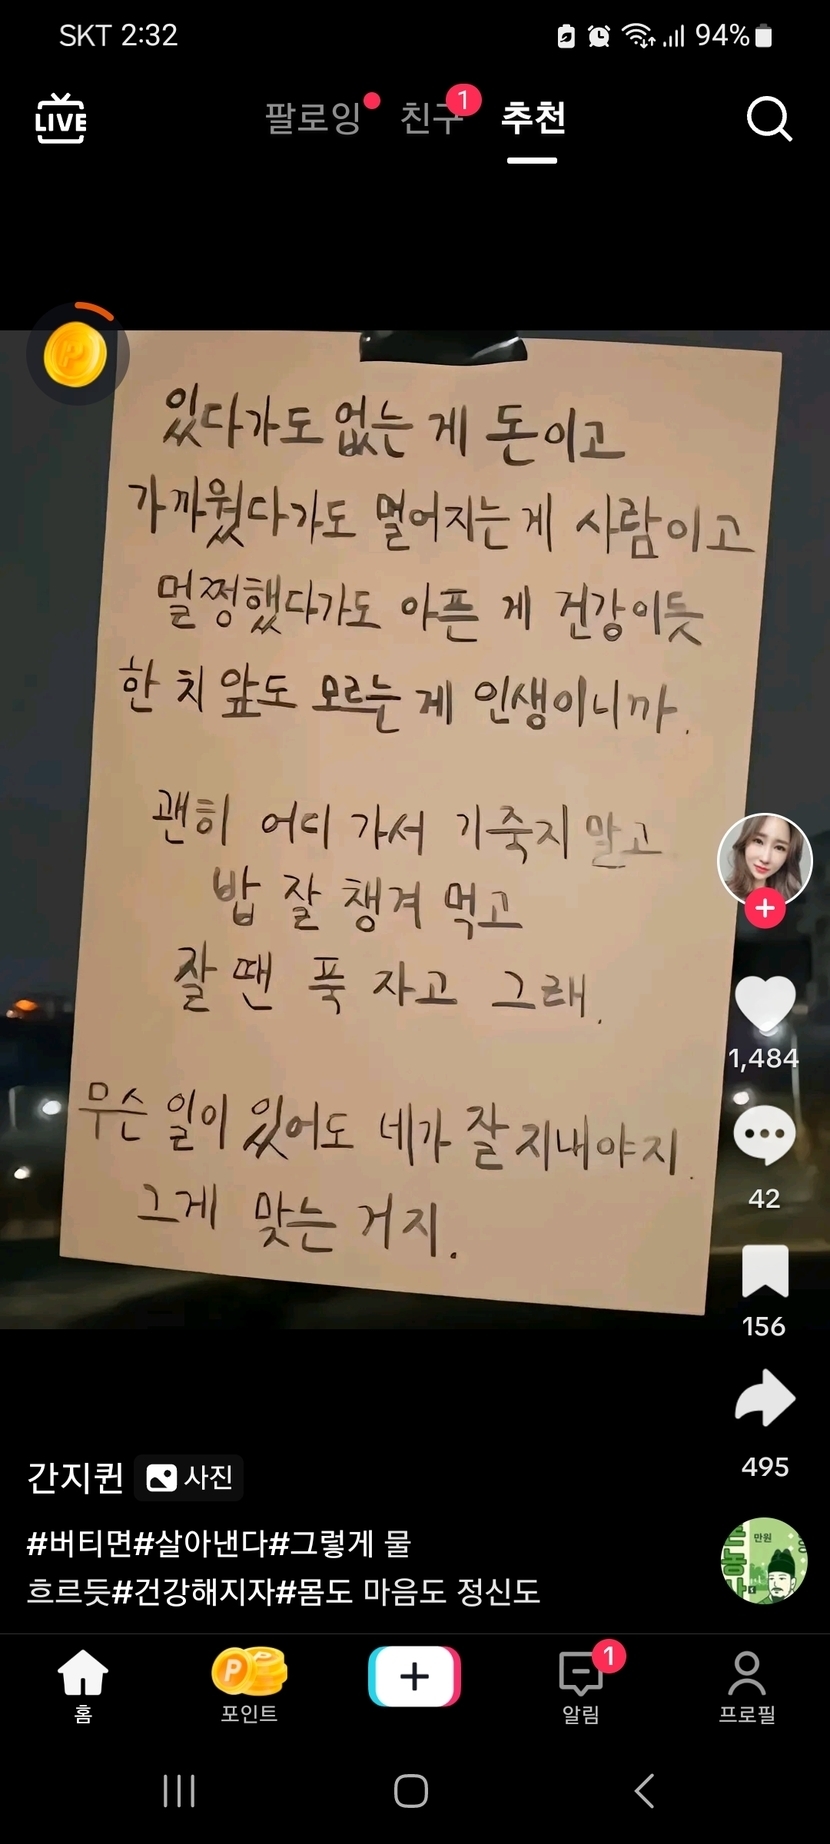 SKT 2:32
94%
LIVE
팔로잉 친구 1 추천
있다가도 없는 게 돈이고
가까웠다가도 멀어지는 게 사람이고
멀쩡했다가도 아픈 게 건강이듯
한 치 앞도 모르는 게 인생이니까.
괜히 어디 가서 기죽지 말고
밥 잘 챙겨 먹고
잘 땐 푹 자고 그래.
무슨 일이 있어도 네가 잘 지내야지.
그게 맞는 거지.
1,484
42
156
495
간지퀸 사진
#버티면#살아낸다#그렇게 물
흐르듯#건강해지자#몸도 마음도 정신도
만원
홈
P
포인트
1
알림
프로필